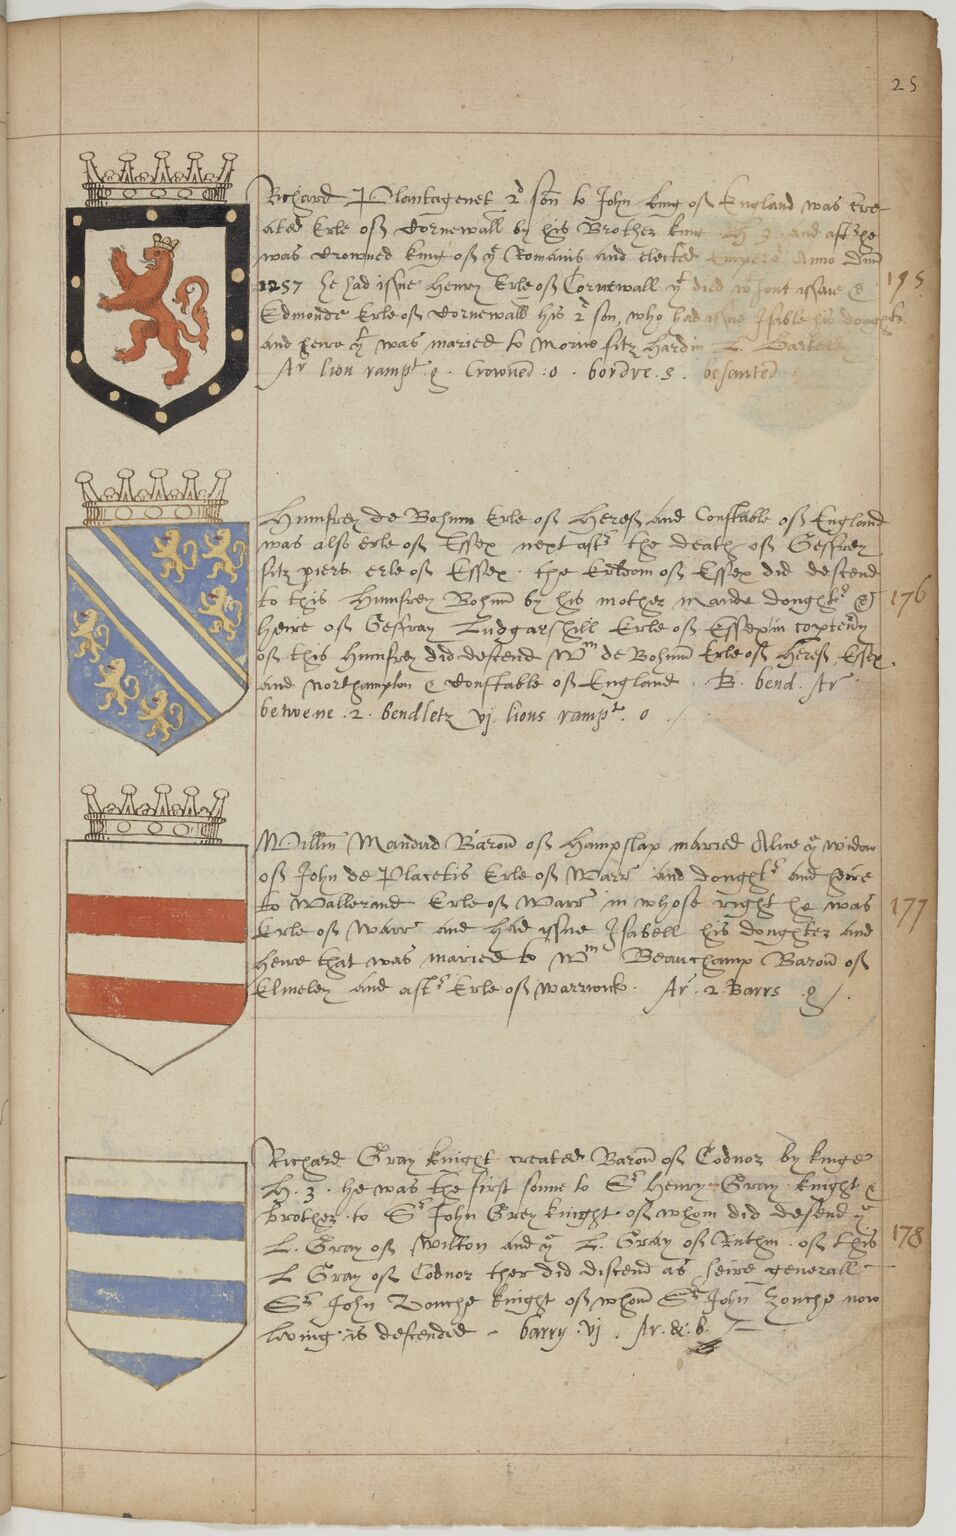 25
Richard Plantagenet 2 son to John king off England was cre-
ated Erle off Cornewall by his Brother king H 3. and aftr he
was Crowned king off ye Romanis and elected Emperor Anno Dni
1257 he had issue Henry Erle off Cornewall yt died wt out issue &
175
Edmonde Erle off Cornewall his 2 son, who had issue Isable his doughtr
and heire yt was maried to Morice fitz Hardin L. Barkeley
Ar lion rampt. g. Crowned .o. bordre .s. besanted
Humfrey de Bohum Erle off Hereff and Constable off England
was also erle off Essex next aftr the death off Geffrey
fitz piers erle off Essex. the Erldom off Essex did descend
to this Humfrey Bohum by his mother Maude doughtr &
176
heire off Geffray Ludgarshill Erle off Essex in
off this Humfrey did descend Wm de Bohum Erle off Hereff Essex
and Northampton & Constable off England. B. bend. Ar
betwene .2. bendletz vj. lions rampt. o
Willm Mandvid Baron off Hampslap maried Alice ye widow
off John de Placetis Erle off Warr and doughtr and heire
to Wallerand Erle off Warr in whose right he was
177
Erle off Warr and had yssue Isabell his doughter and
heire that was maried to Wm Beauchamp Baron off
Elmeley and aftr Erle off Warrwick. Ar. 2. Barrs .g
Richard Gray knight created Baron off Codnor by kinge
H. 3. he was the first sonne to Sr Henry Gray knight &
brother to Sr John Grey knight off whom did desend ye
L. Gray off Wilton and ye L. Gray off Ruthin. off this
178
L Gray off Codnor ther did discend as heire generall
Sr John Zouche knight off whom Sr John Zouche now
living is descendid - barry .vj. Ar. & b.